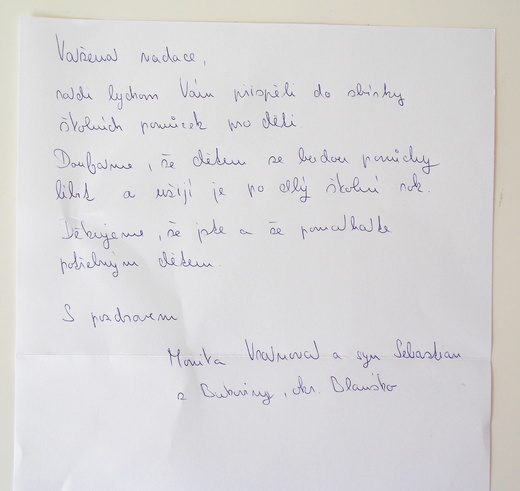 Vážená nadace,
rádi bychom Vám přispěli do sbírky
školních pomůcek pro děti.
Doufáme, že dětem se budou pomůcky
líbit a užijí je po celý školní rok.
Děkujeme, že jste a že pomáháte
potřebným dětem.
S pozdravem
Monika a syn Sebastian
z Bukoviny, okr. Blansko